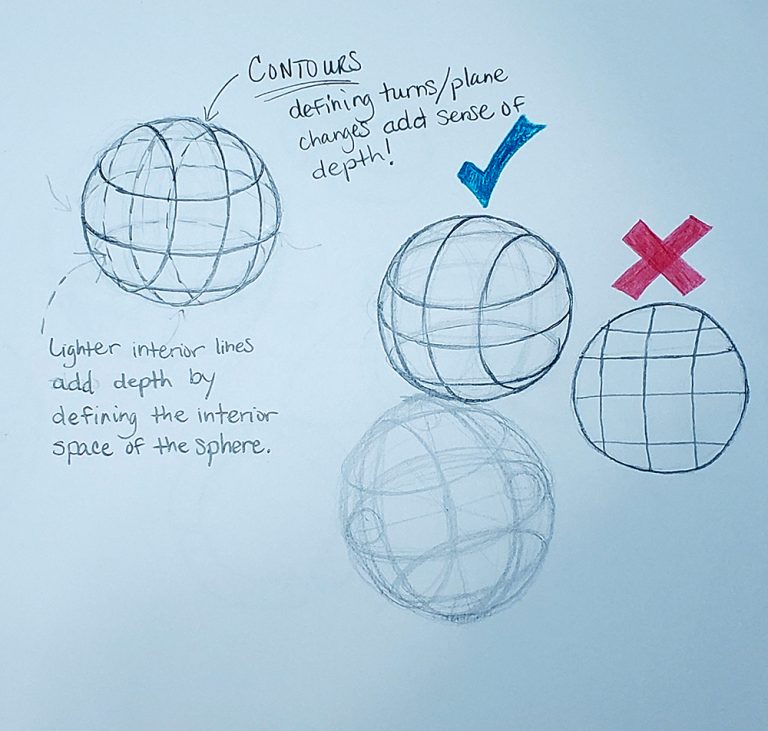 CONTOURS
defining turns/plane
changes add sense of
depth!
Lighter interior lines
add depth by
defining the interior
space of the sphere.